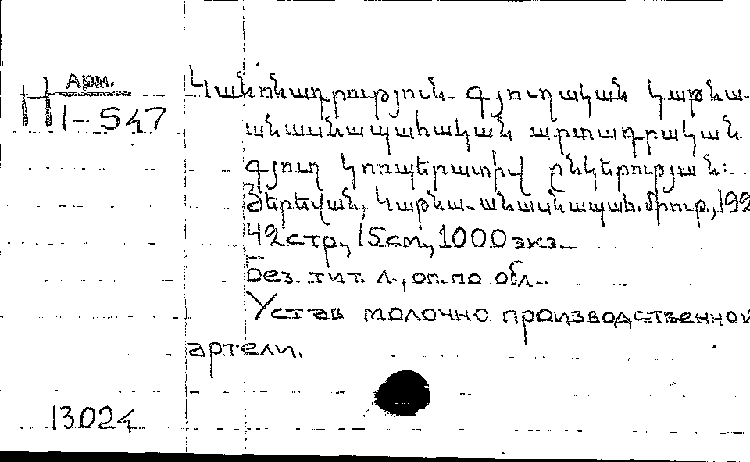 Арм.
HI-547
Կանոնադրություն գյուղական կաթնա-
անասնապահական արտադրական
գյուղ կոոպերատիվ ընկերության:
Յերեվան, Կաթնա-անասնապահ. միութ., 192
42 стр, 15см, 1000 экз.
Без тит. л., оп. по обл.
Устав молочно производственной
артели.
13024